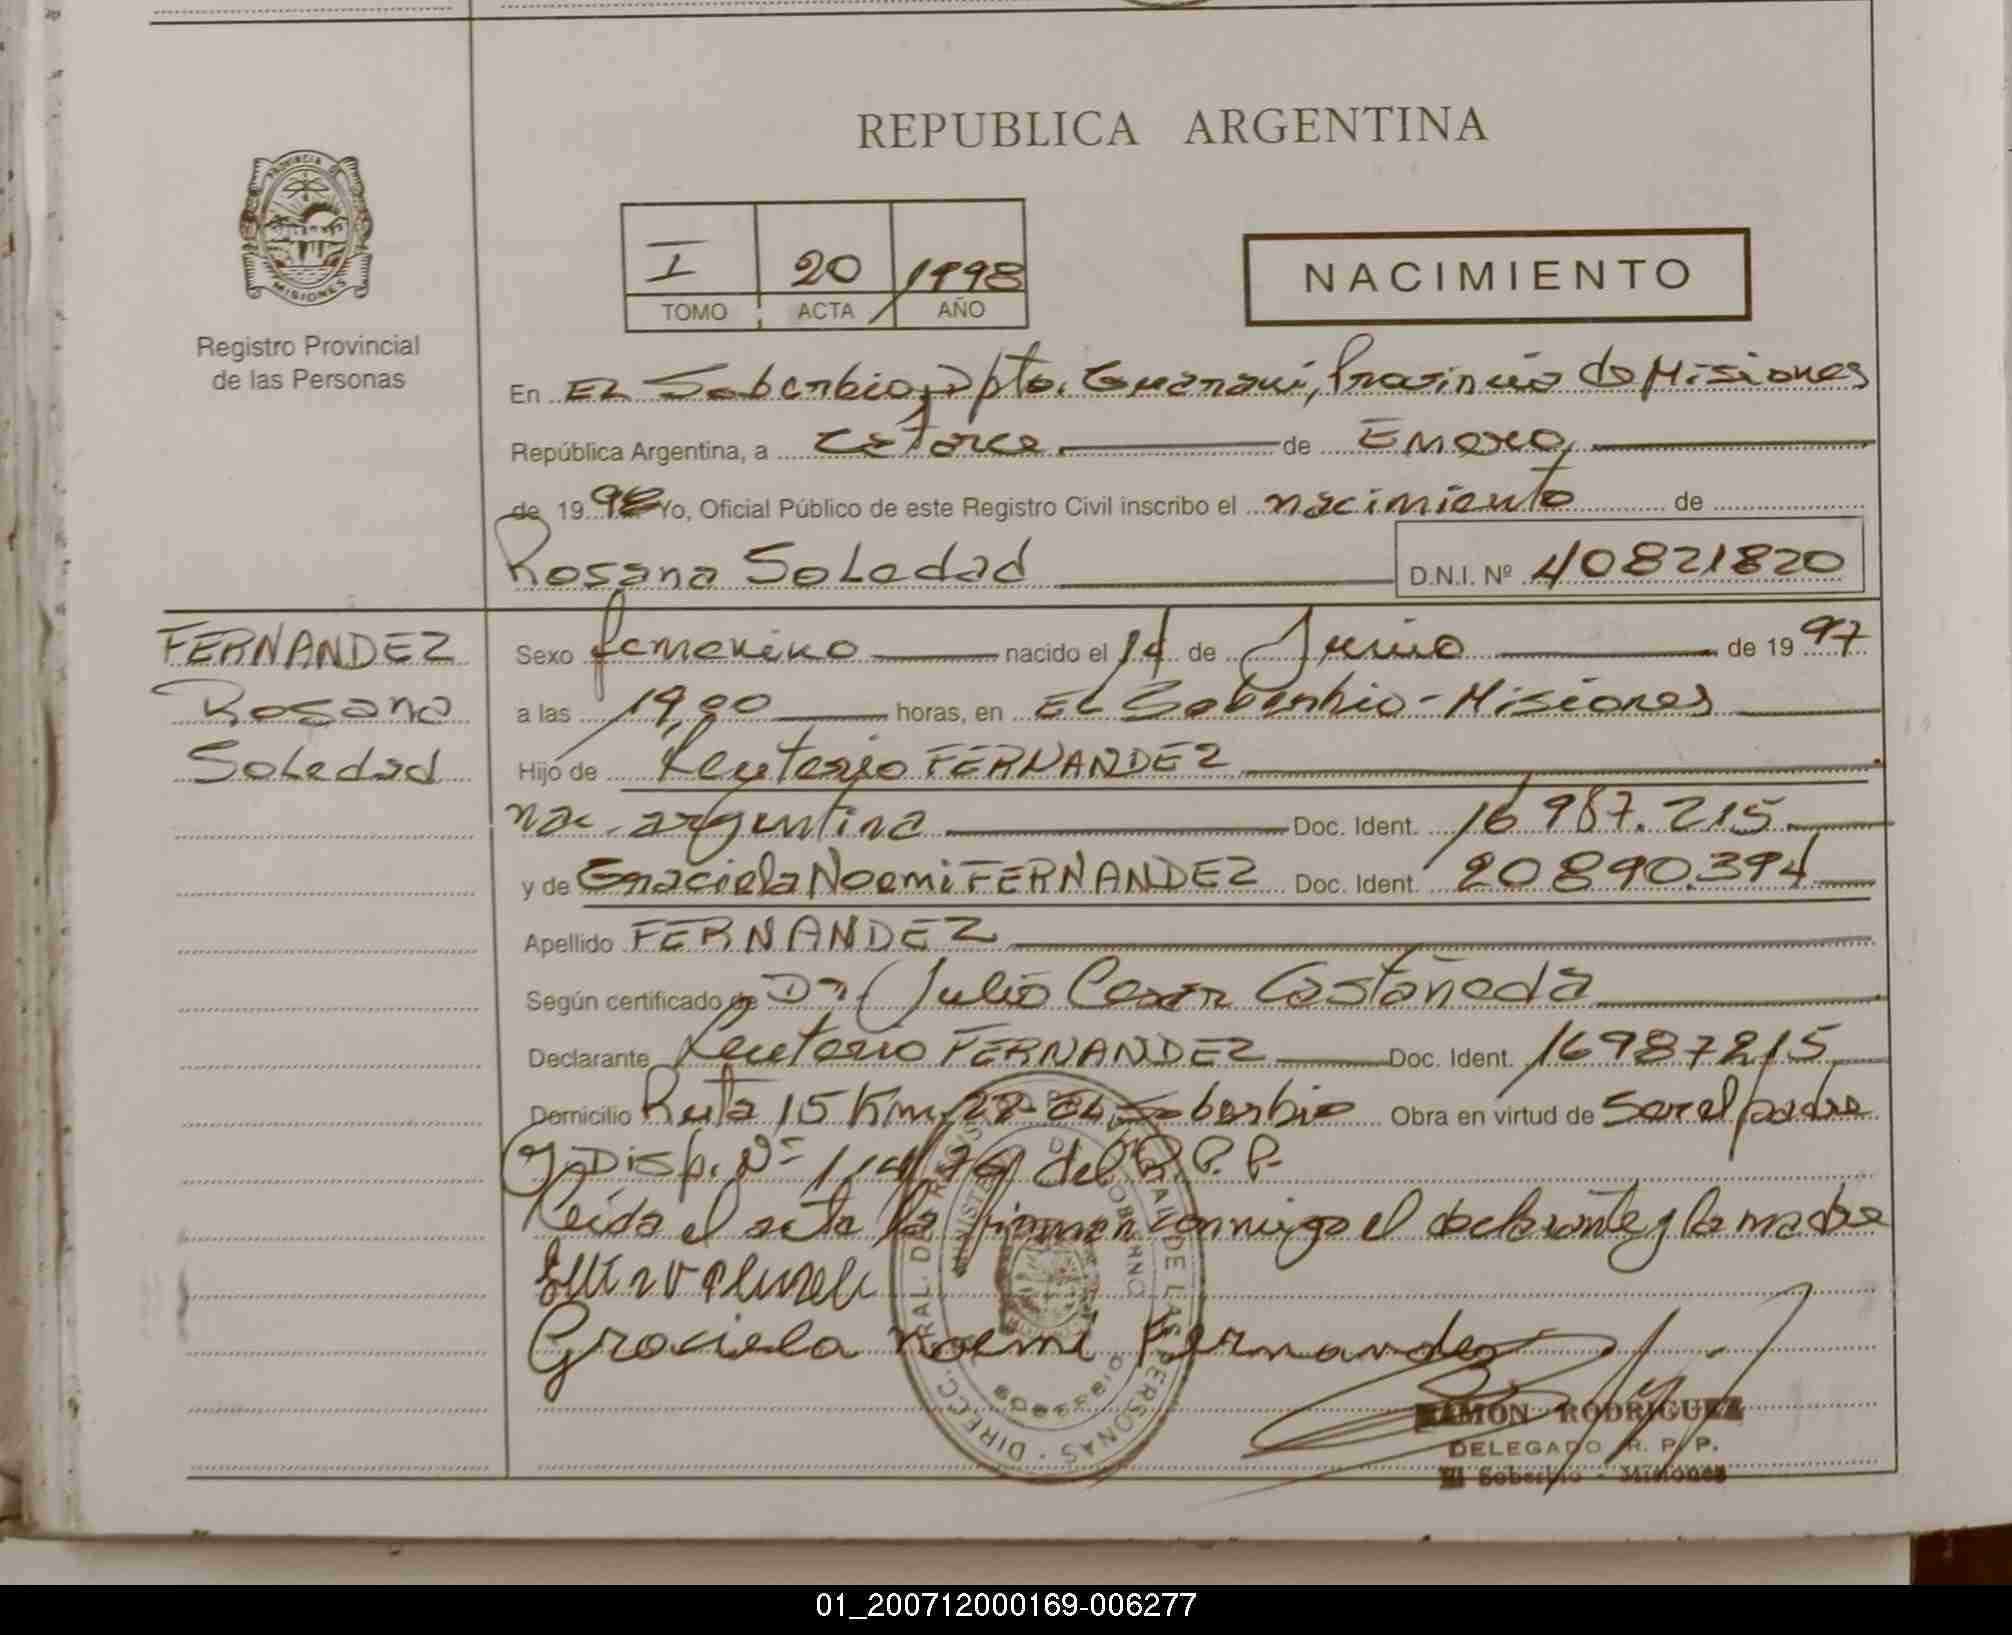 REPUBLICA ARGENTINA
PROVINCIA DE MISIONES
Registro Provincial
de las Personas
I 20 1998
TOMO ACTA AÑO
NACIMIENTO
En EL Soberbio, Dpto. Guaraní, Provincia de Misiones
República Argentina, a catorce de Enero
de 1998 Yo, Oficial Público de este Registro Civil inscribo el nacimiento de
Rosana Soledad D.N.I. Nº 40821820
FERNANDEZ
Rosana
Soledad
Sexo femenino nacido el 14 de Junio de 1997
a las 19,00 horas, en EL Soberbio - Misiones
Hijo de Leuterio FERNANDEZ
nac. argentina Doc. Ident. 16.987.215
y de Graciela Noemi FERNANDEZ Doc. Ident. 20890.394
Apellido FERNANDEZ
Según certificado de Dr. Julio Cesar Castañeda
Declarante Leuterio FERNANDEZ Doc. Ident. 16987215
Domicilio Ruta 15 Km. 22 - EL Soberbio Obra en virtud de ser el padre
y Disp. Nº del R.P.P.
Leída el acta la firman conmigo el declarante y la madre
Graciela Noemi Fernandez
DIRECC. GRAL. DE REGISTRO PROVINCIAL DE LAS PERSONAS
SOBERBIO
RAMON RODRIGUEZ
DELEGADO R. P. P.
El Soberbio - Misiones
01_200712000169-006277